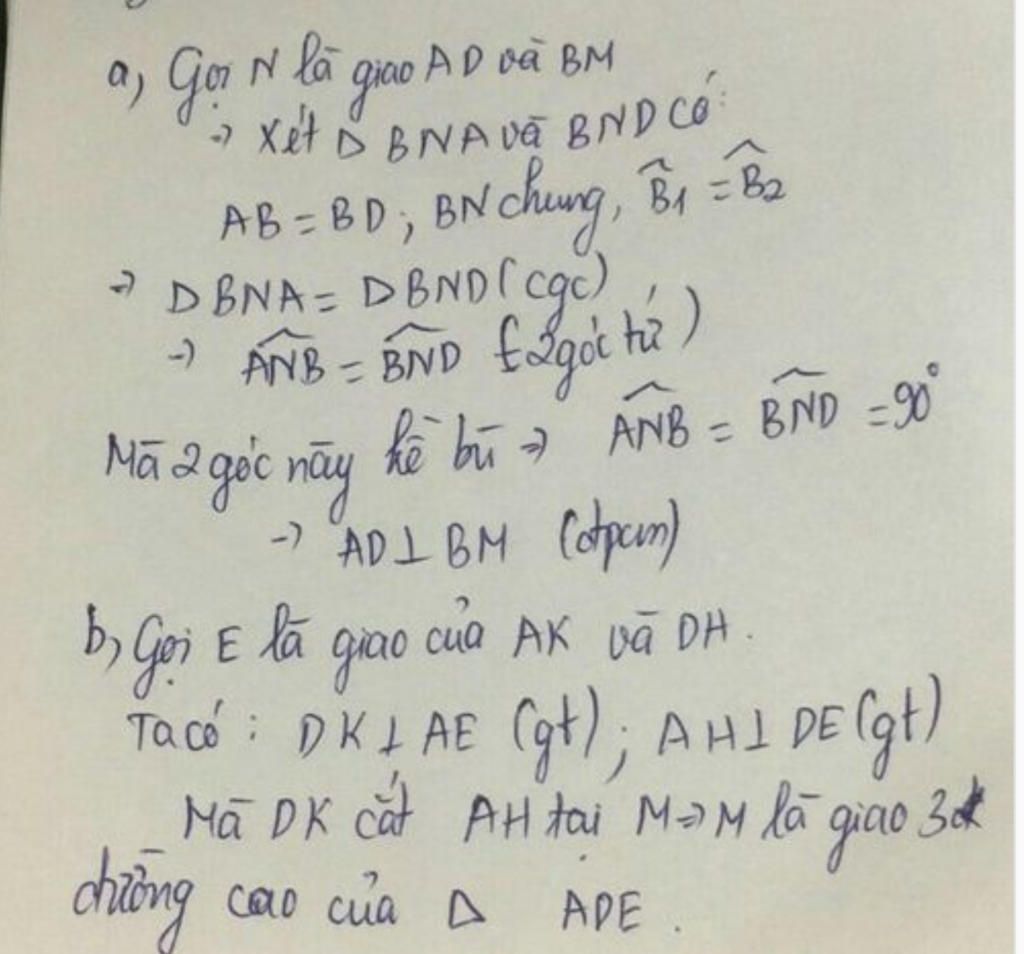 a, Gọi N là giao AD và BM
→ Xét Δ BNA và BND có:
AB = BD ; BN chung, B̂1 = B̂2
→ Δ BNA = Δ BND (cgc)
→ ANB̂ = BND̂ (2 góc tứ)
Mà 2 góc này kề bù → ANB̂ = BND̂ = 90°
→ AD ⊥ BM (đpcm)
b, Gọi E là giao của AK và DH.
Ta có : DK ⊥ AE (gt) ; AH ⊥ DE (gt)
Mà DK cắt AH tại M => M là giao 3
đường cao của Δ ADE.